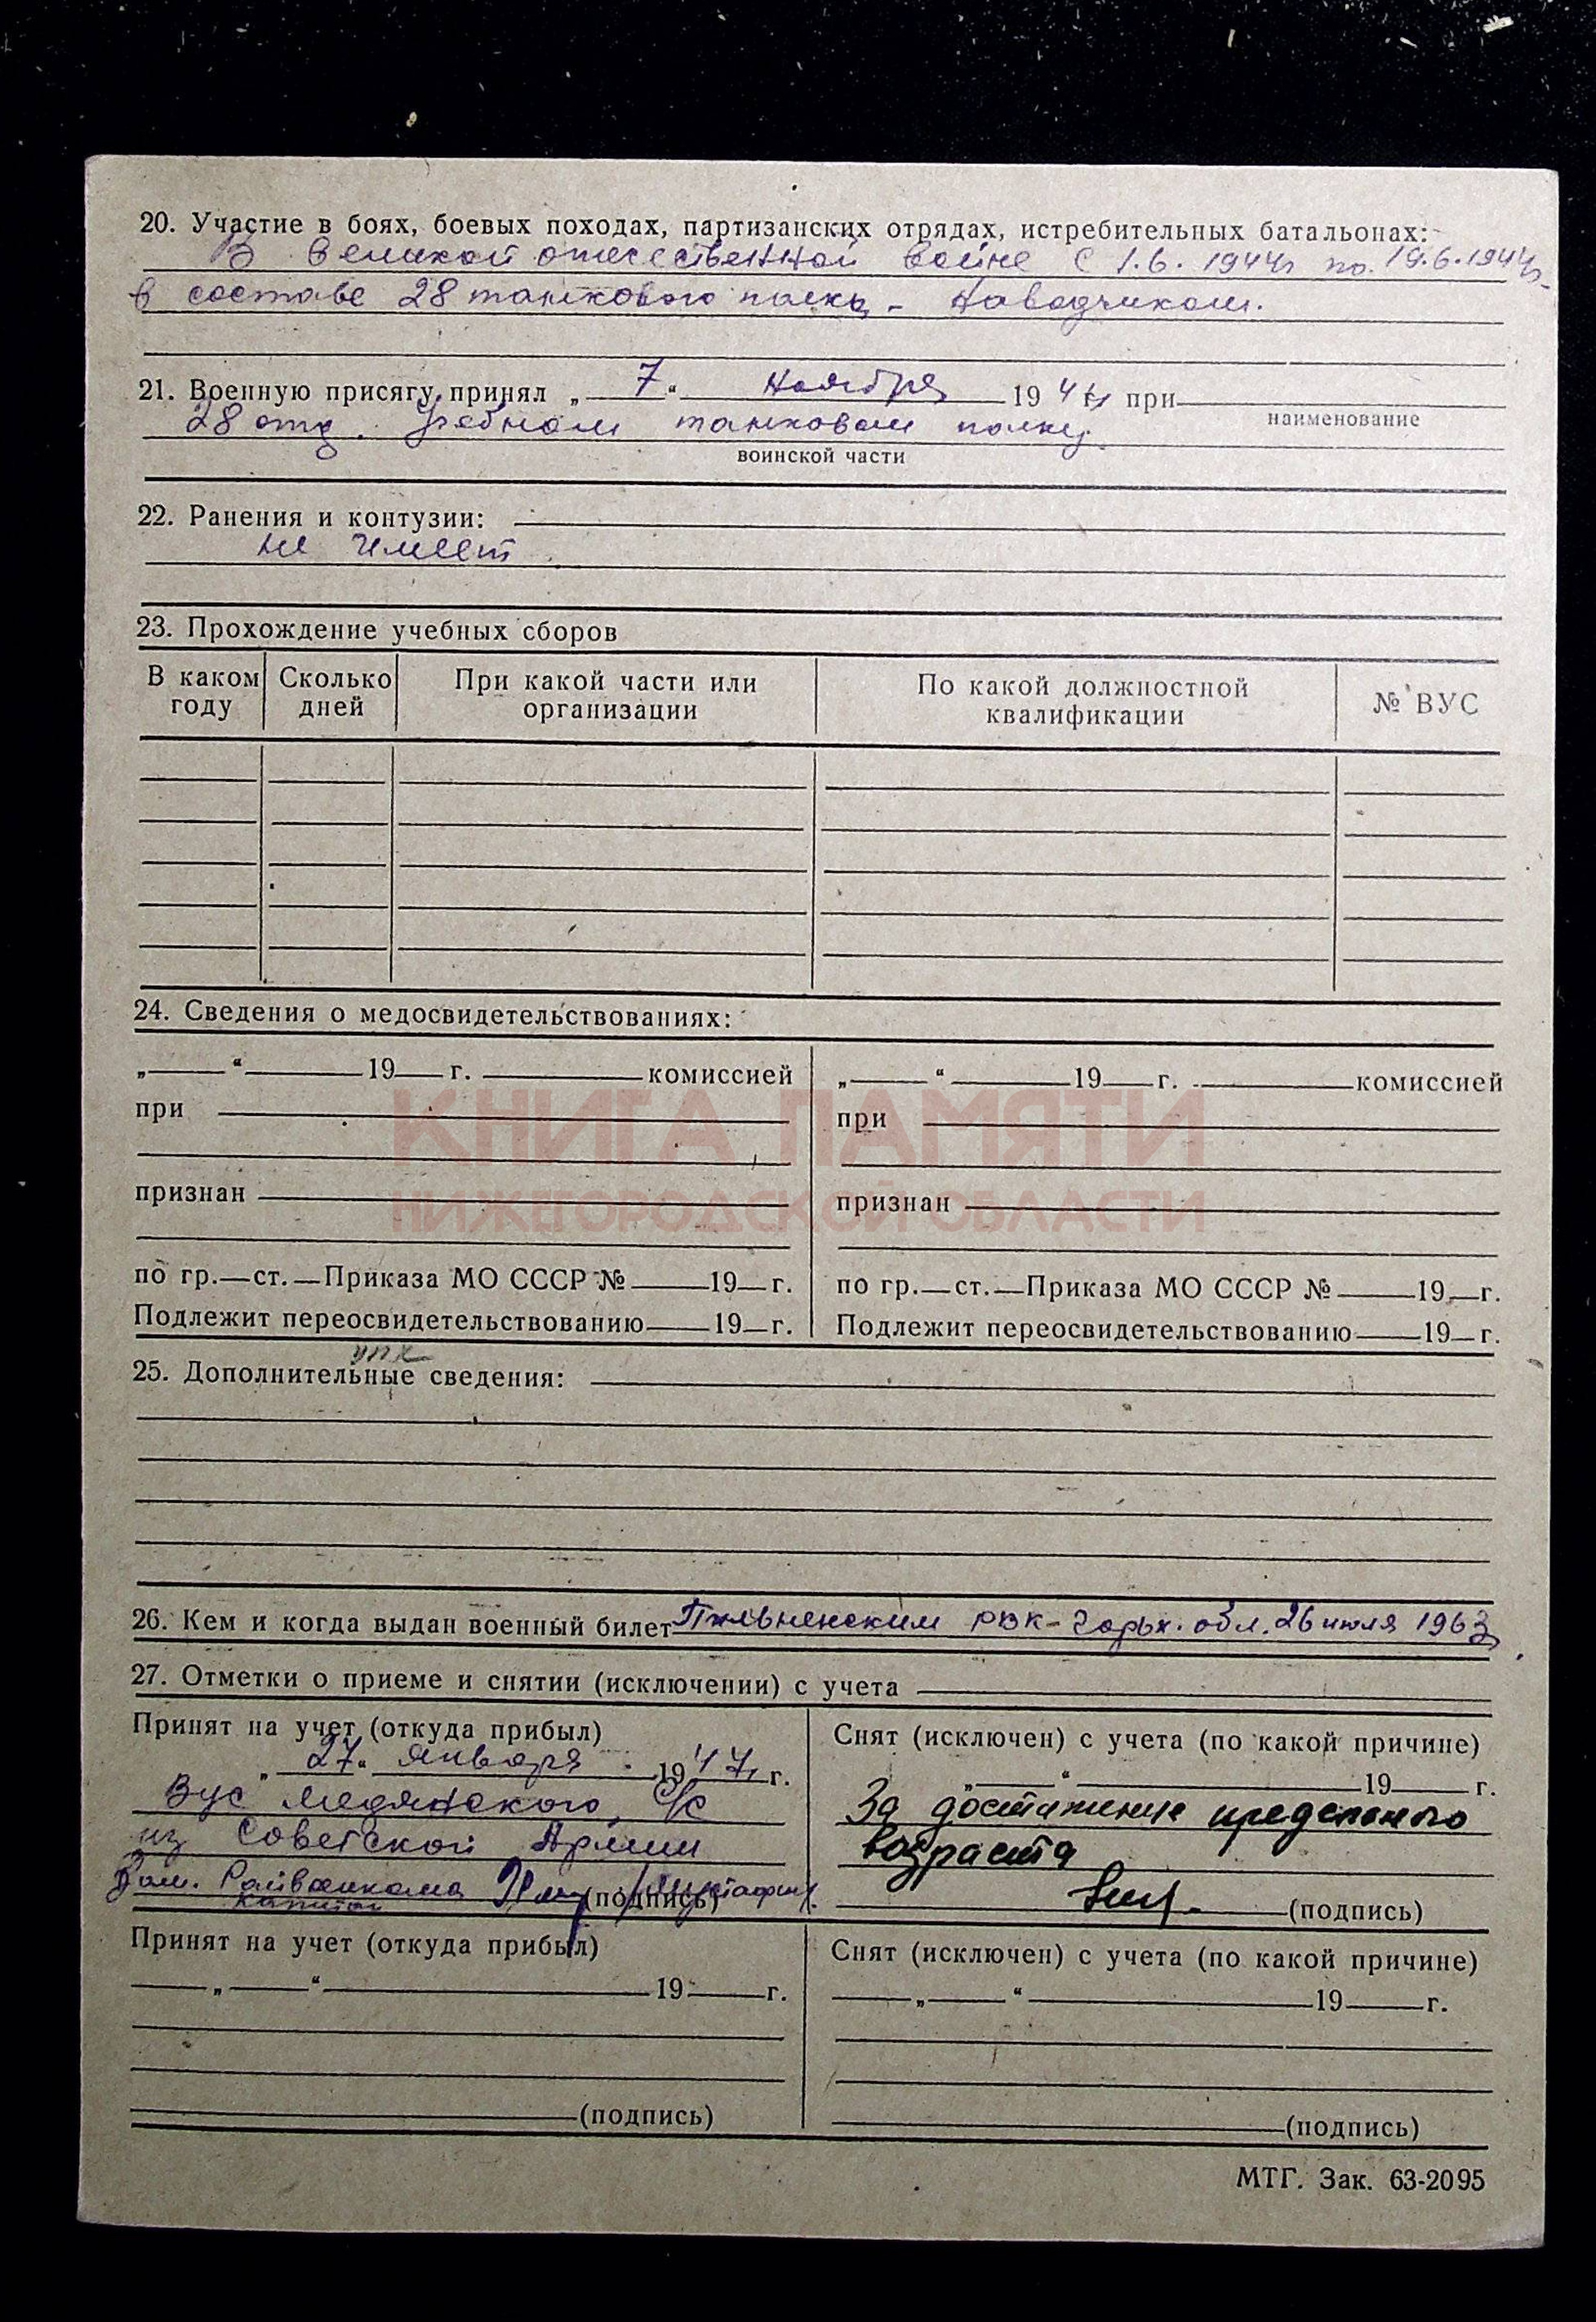 20. Участие в боях, боевых походах, партизанских отрядах, истребительных батальонах:
В Великой отечественной войне с 1.6.1944г по 19.6.1944г.
в составе 28 танкового полка - наводчиком.
21. Военную присягу принял „ 7 “ ноября 1944 при
наименование
28 отд. учебном танковом полку.
воинской части
22. Ранения и контузии:
не имеет
23. Прохождение учебных сборов
В каком году Сколько дней При какой части или организации По какой должностной квалификации № ВУС
24. Сведения о медосвидетельствованиях:
„ “ 19 г. комиссией „ “ 19 г. комиссией
при при
КНИГА ПАМЯТИ
признан признан
НИЖЕГОРОДСКОЙ ОБЛАСТИ
по гр. ст. Приказа МО СССР № 19 г. по гр. ст. Приказа МО СССР № 19 г.
Подлежит переосвидетельствованию 19 г. Подлежит переосвидетельствованию 19 г.
25. Дополнительные сведения:
26. Кем и когда выдан военный билет Пильненским РВК - Горьк. обл. 26 июля 1963
27. Отметки о приеме и снятии (исключении) с учета
Принят на учет (откуда прибыл) Снят (исключен) с учета (по какой причине)
„ 27 “ января 1947 г. „ “ 19 г.
Вус Медянского с/с За достижение предельного
из Советской Армии возраста
Зам. Райвоенкома (подпись) (подпись)
капитан
Принят на учет (откуда прибыл) Снят (исключен) с учета (по какой причине)
„ “ 19 г. „ “ 19 г.
(подпись) (подпись)
МТГ. Зак. 63-2095